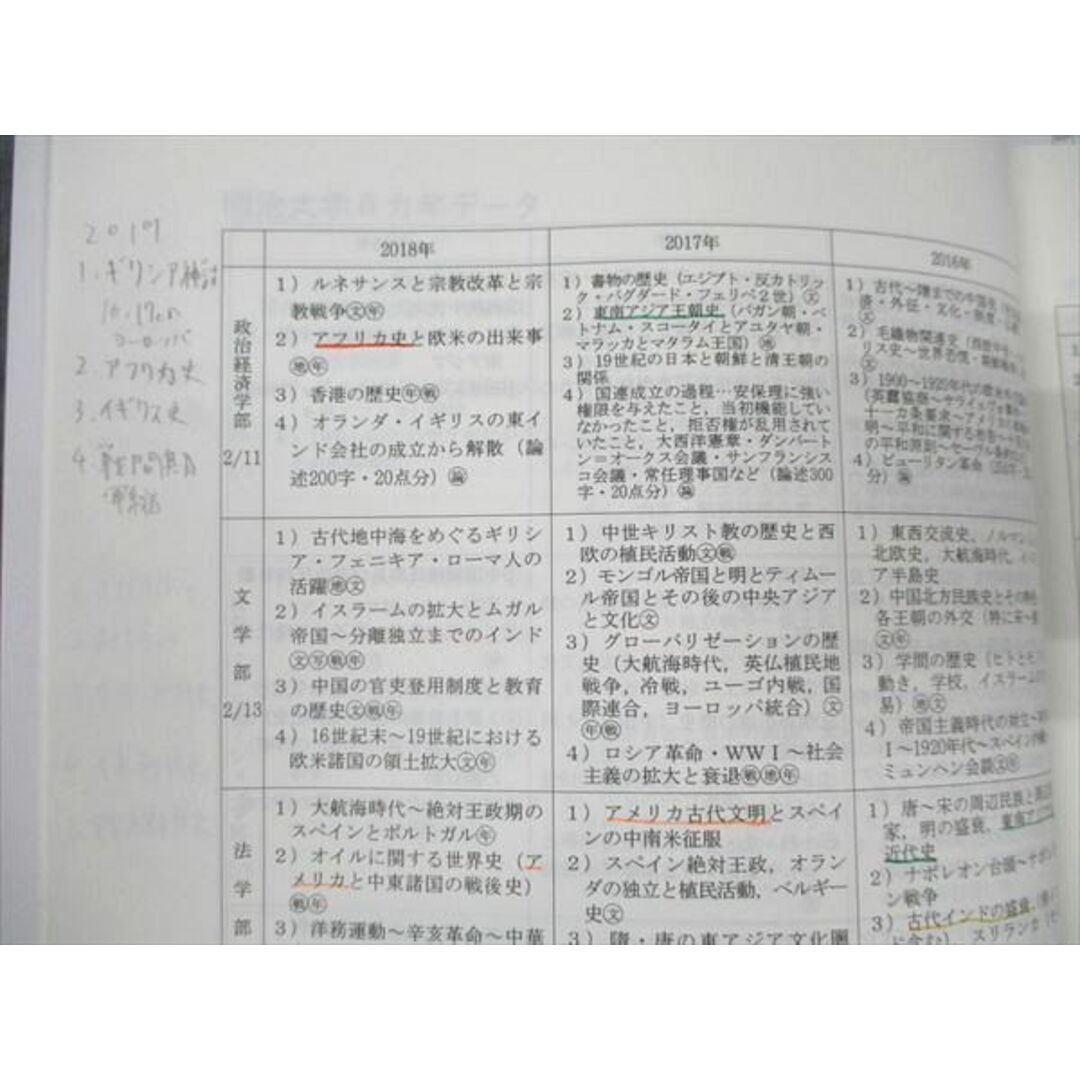 2019
1. ギリシア
16、17Cの
ヨーロッパ
2. アフリカ史
3. イギリス史
4.
2018年
2017年
2016年
政治経済学部
2/11
1）ルネサンスと宗教改革と宗
教戦争㊛年
2）アフリカ史と欧米の出来事
地年
3）香港の歴史年戦
4）オランダ・イギリスの東イ
ンド会社の成立から解散（論
述200字・20点分）論
1）書物の歴史（エジプト・反カトリッ
ク・バグダード・フェリペ2世）文
2）東南アジア王朝史（パガン朝・ベ
トナム・スコータイとアユタヤ朝・
マラッカとマタラム王国）地
3）19世紀の日本と朝鮮と清王朝の
関係
4）国連成立の過程…安保理に強い
権限を与えたこと，当初機能してい
なかったこと，拒否権が乱用されて
いたこと，大西洋憲章・ダンバート
ン＝オークス会議・サンフランシス
コ会議・常任理事国など（論述300
字・20点分）論
1）古代～隋までの中国史
済・外征・文化・制度
文
2）毛織物関連史
リス史～世界恐慌
文
3）1900～1920年代の欧米
（英露協商～サライェヴォ
十一カ条要求～アメリカ
明～平和に関する布告～
の平和原則～
4）ピューリタン革命
論
文学部
2/13
1）古代地中海をめぐるギリシ
ア・フェニキア・ローマ人の
活躍地文
2）イスラームの拡大とムガル
帝国～分離独立までのインド
文写戦年
3）中国の官吏登用制度と教育
の歴史文戦年
4）16世紀末～19世紀における
欧米諸国の領土拡大文年
1）中世キリスト教の歴史と西
欧の植民活動文戦
2）モンゴル帝国と明とティムー
ル帝国とその後の中央アジア
と文化文
3）グローバリゼーションの歴
史（大航海時代，英仏植民地
戦争，冷戦，ユーゴ内戦，国
際連合，ヨーロッパ統合）文
年戦
4）ロシア革命・WWⅠ～社会
主義の拡大と衰退戦地年
1）東西交流史，ノルマン
北欧史，大航海時代，イ
ア半島史
2）中国北方民族史とその
各王朝の外交（特に宋～
文年
3）学問の歴史（ヒトとモ
動き，学校，イスラームの
易）地文
4）帝国主義時代の対立～
Ⅰ～1920年代～スペイン
ミュンヘン会談文年
法学部
1）大航海時代～絶対王政期の
スペインとポルトガル年
2）オイルに関する世界史（ア
メリカと中東諸国の戦後史）
戦年
3）洋務運動～辛亥革命～中華
1）アメリカ古代文明とスペイ
ンの中南米征服
2）スペイン絶対王政，オラン
ダの独立と植民活動，ベルギー
史文
3）隋・唐の東アジア文化圏
1）唐～宋の周辺民族と
家，明の盛衰，東南アジ
近代史
2）ナポレオン台頭～ナポ
ン戦争
3）古代インドの盛衰
ド含む），スリランカ